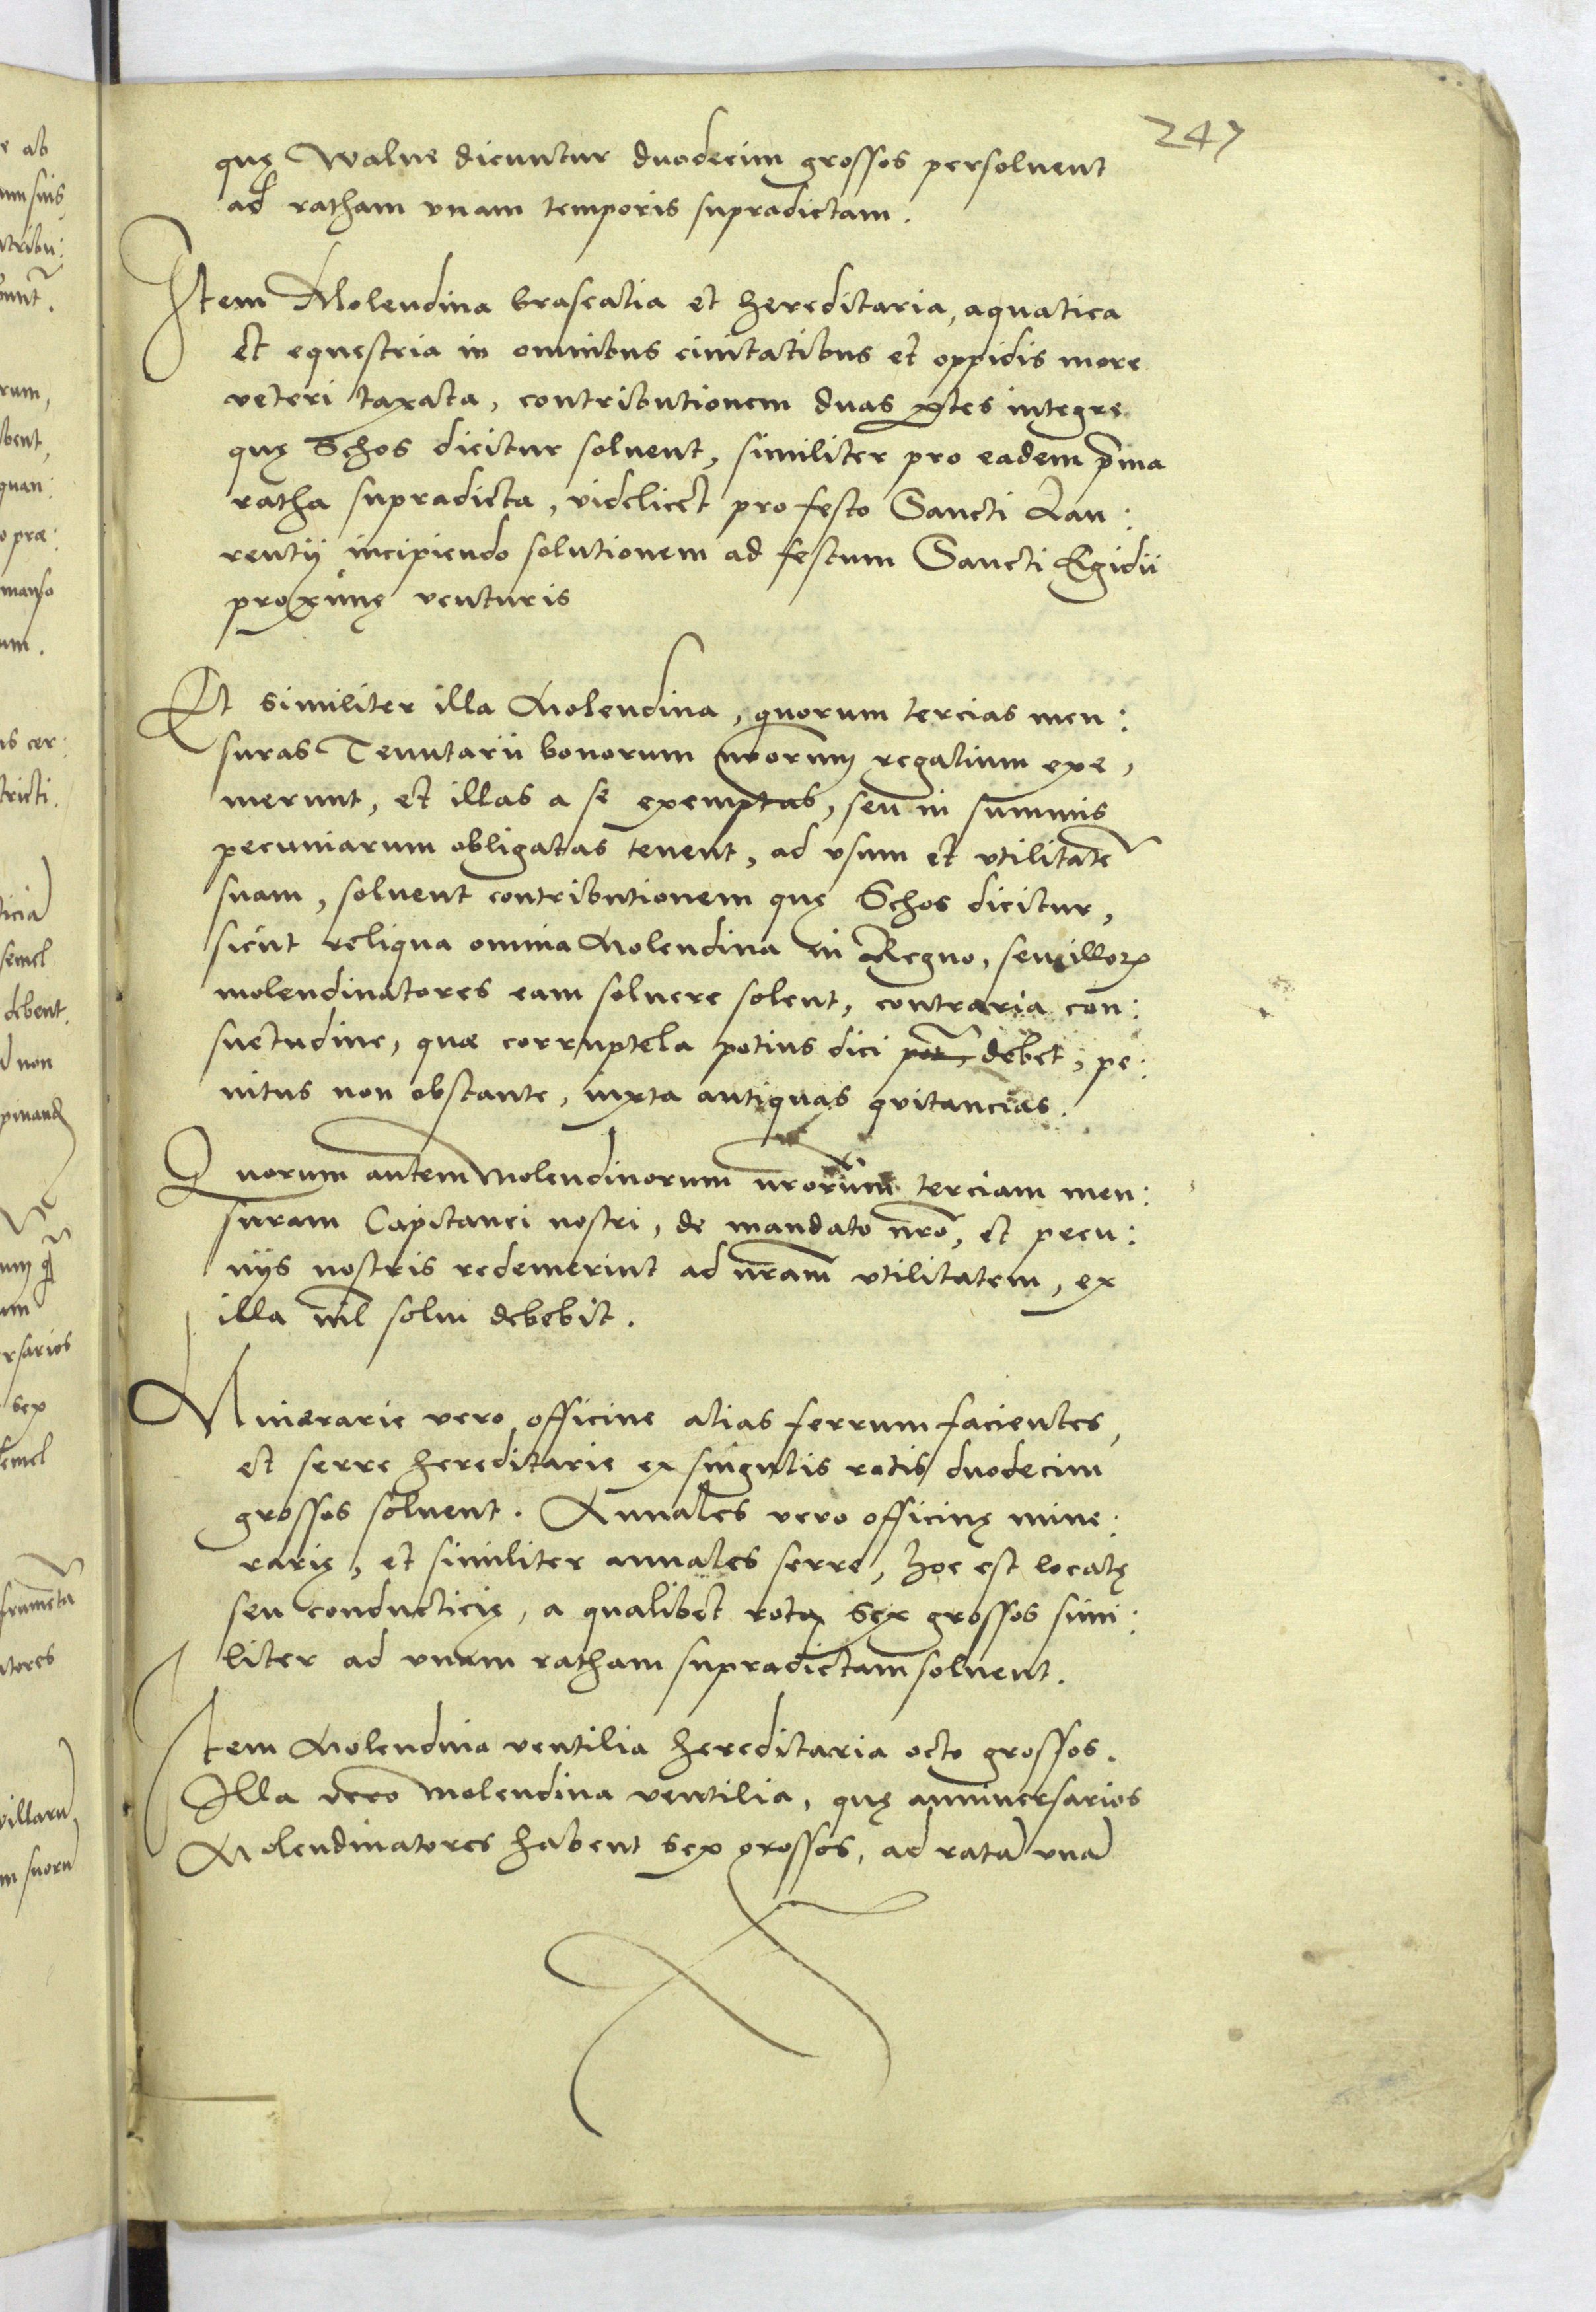 247
quę Walne dicuntur duodecim grossos persoluent
ad ratham vnam temporis supradictam.
Item Molendina braseatia et hereditaria, aquatica
et equestria in omnibus ciuitatibus et oppidis more
veteri taxata, contributionem duas ptes integre
quę Schos dicitur soluent, similiter pro eadem pma
ratha supradicta, videlicet pro festo Sancti Lau:
rentij incipiendo solutionem ad festum Sancti Egidii
proximę venturis
Et similiter illa Molendina, quorum tercias men:
suras Tenutarii bonorum nrorum regalium exe,
merunt, et illas a se exemptas, seu in summis
pecuniarum obligatas tenent, ad vsum et vtilitatē
suam, soluent contributionem quę Schos dicitur,
sicut reliqua omnia Molendina in Regno, seu illorꝝ
molendinatores eam soluere solent, contraria con:
suetudine, quæ corruptela potius dici debet, pe:
nitus non obstante, iuxta antiquas quitancias.
Quorum autem Molendinorum nrorum terciam men:
suram Capitanei nostri, de mandato nrō, et pecu:
niis nostris redemerint ad nram vtilitatem, ex
illa nil solui debebit.
Minerarie vero officine alias ferrum facientes,
et serre hereditarie ex singulis rotis duodecim
grossos soluent. Annales vero officinę mine:
rarię, et similiter annales serre, hoc est locatę
seu conducticię, a qualibet rota sex grossos simi:
liter ad vnam ratham supradictam soluent.
Item Molendina ventilia hereditaria octo grossos.
Illa vero Molendina ventilia, quę anniuersarios
Molendinatores habent sex grossos, ad ratā vnā